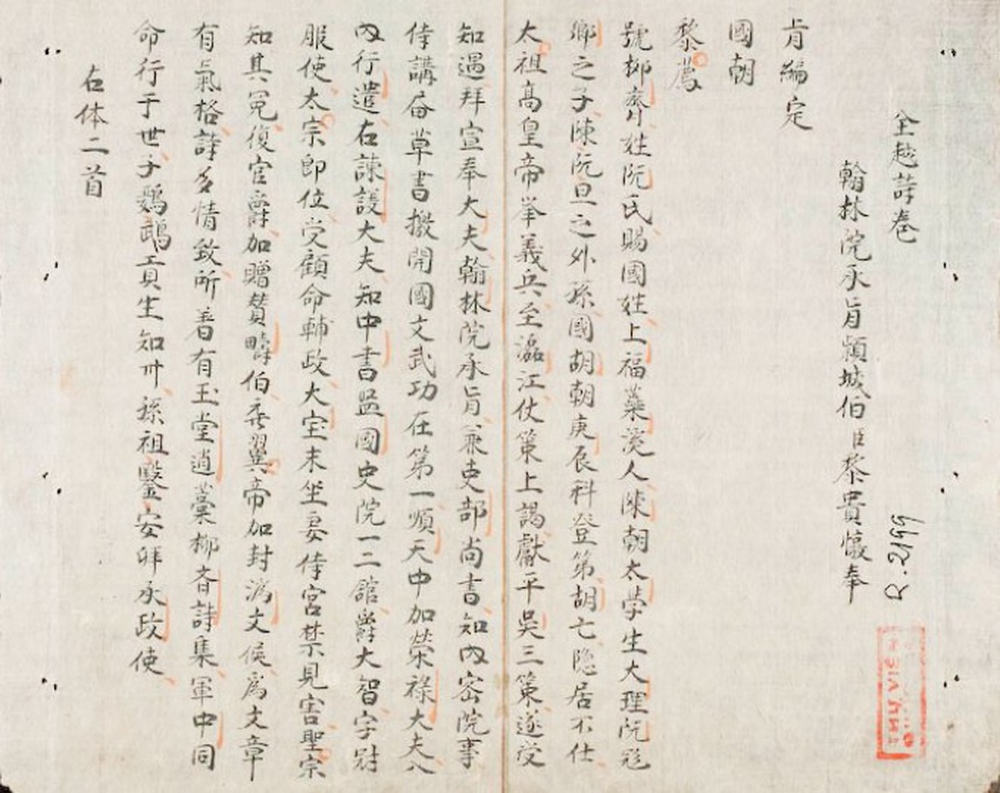 全越詩卷
翰林院承旨頴城伯臣黎貴惇奉
旨編定
國朝
黎薦
號抑齋姓阮氏賜國姓上福蘂溪人陳朝太學生大理阮飛
卿之子陳阮旦之外孫國胡朝庚辰科登第胡亡隐居不仕
太祖高皇帝举義兵至㵢江仗策上謁獻平吳三策遂受
知遇拜宣奉大夫翰林院承旨兼吏部尚書知內密院事
侍講畨草書檄開國文武功在第一順天中加榮祿大夫入
內行遣右諫護大夫知中書监國史院一二舘爵大智字尉
服使太宗即位受顧命輔政大宝末坐妾侍宮禁見害聖宗
知其冤復官爵加贈賛疇伯香翼帝加封濟文侯爲文章
有氣格詩多情致所着有玉堂逍藁抑斎詩集軍中同
命行于世子鸚鵡貢生知州孫祖鑒安拜承政使
右体二首
R.2199